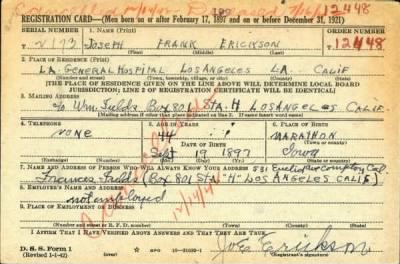 REGISTRATION CARD—(Men born on or after February 17, 1897 and on or before December 31, 1921)
SERIAL NUMBER 1. NAME (Print) ORDER NUMBER
2173 JOSEPH FRANK ERICKSON 12448
(First) (Middle) (Last)
2. PLACE OF RESIDENCE (Print)
L.A. GENERAL HOSPITAL LOS ANGELES L.A. CALIF
(Number and street) (Town, township, village, or city) (County) (State)
[THE PLACE OF RESIDENCE GIVEN ON THE LINE ABOVE WILL DETERMINE LOCAL BOARD
JURISDICTION; LINE 2 OF REGISTRATION CERTIFICATE WILL BE IDENTICAL]
3. MAILING ADDRESS
c/o Wm Fields Box 801 Sta. H LOS ANGELES CALIF.
[Mailing address if other than place indicated on line 2. If same insert word same]
4. TELEPHONE 5. AGE IN YEARS 6. PLACE OF BIRTH
NONE 44 MARATHON
DATE OF BIRTH (Town or county)
Sept 19 1897 Iowa
(Exchange) (Number) (Mo.) (Day) (Yr.) (State or country)
7. NAME AND ADDRESS OF PERSON WHO WILL ALWAYS KNOW YOUR ADDRESS 531 Compton Cal.
Frances Fields (Box 801 STA "H" LOS ANGELES CALIF)
8. EMPLOYER'S NAME AND ADDRESS
not employed
9. PLACE OF EMPLOYMENT OR BUSINESS
(Number and street or R. F. D. number) (Town) (County) (State)
I AFFIRM THAT I HAVE VERIFIED ABOVE ANSWERS AND THAT THEY ARE TRUE.
D. S. S. Form 1
(Revised 1-1-42) GPO Joe Erickson
(Registrant's signature)